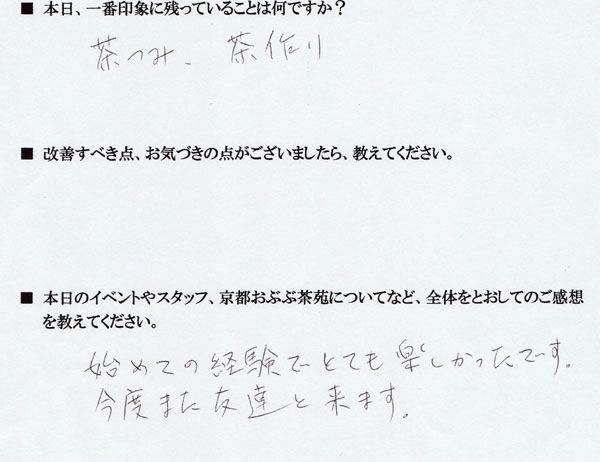 ■ 本日、一番印象に残っていることは何ですか？
茶つみ、茶作り
■ 改善すべき点、お気づきの点がございましたら、教えてください。
■ 本日のイベントやスタッフ、京都おぶぶ茶苑についてなど、全体をとおしてのご感想
を教えてください。
始めての経験でとても楽しかったです。
今度また友達と来ます。